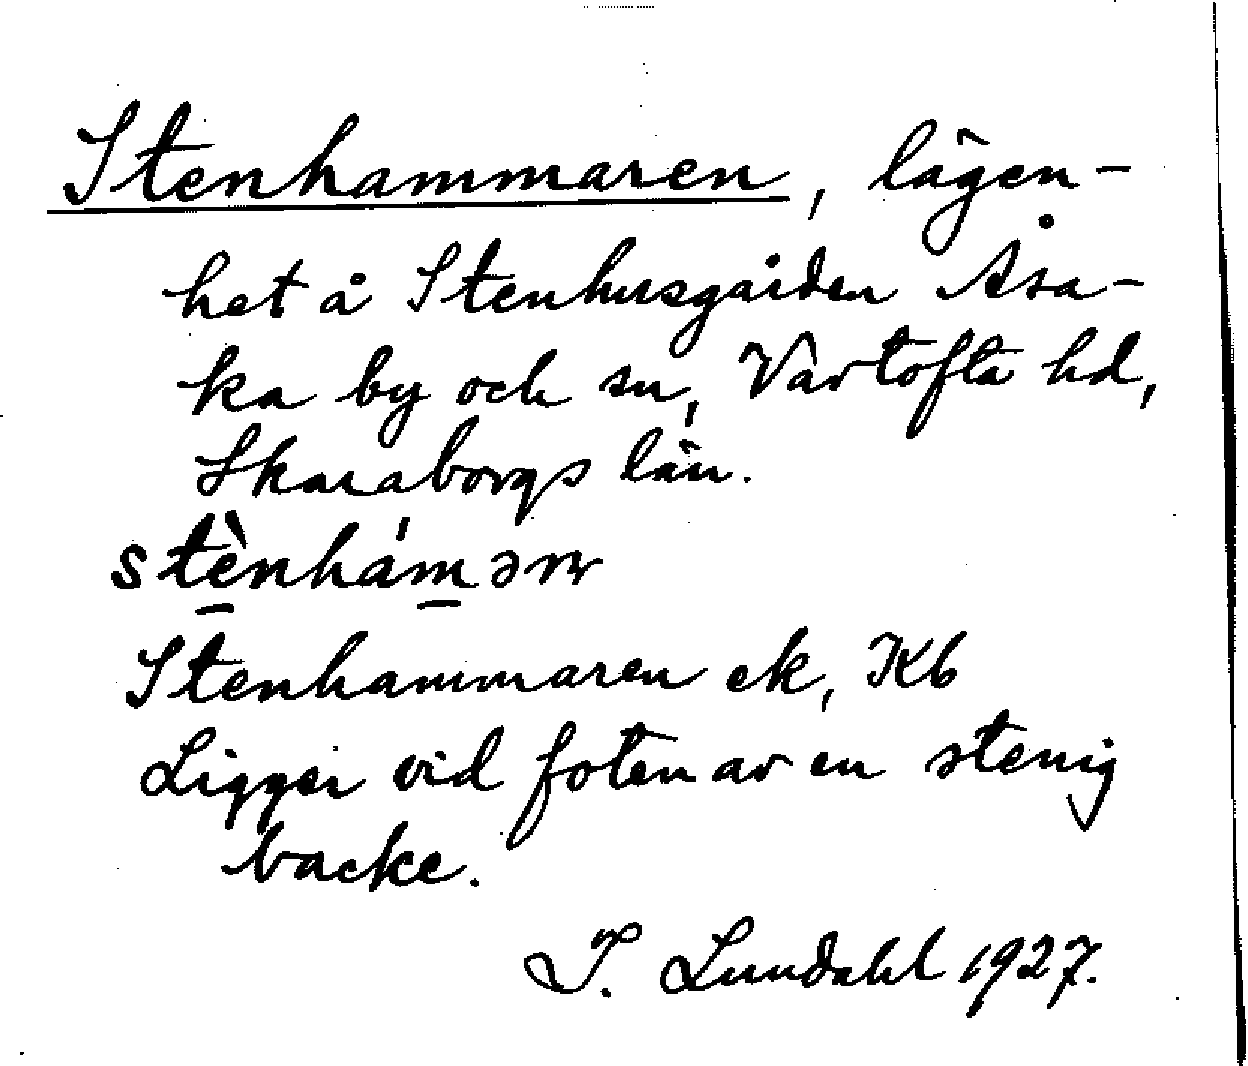 Stenhammaren, lägen-
het å Stenhusgården Åsa-
ka by och sn, Vartofta hd,
Skaraborgs län.
stènhámər
Stenhammaren ek, Kb
Ligger vid foten av en stenig
backe.
I. Lundahl 1927.